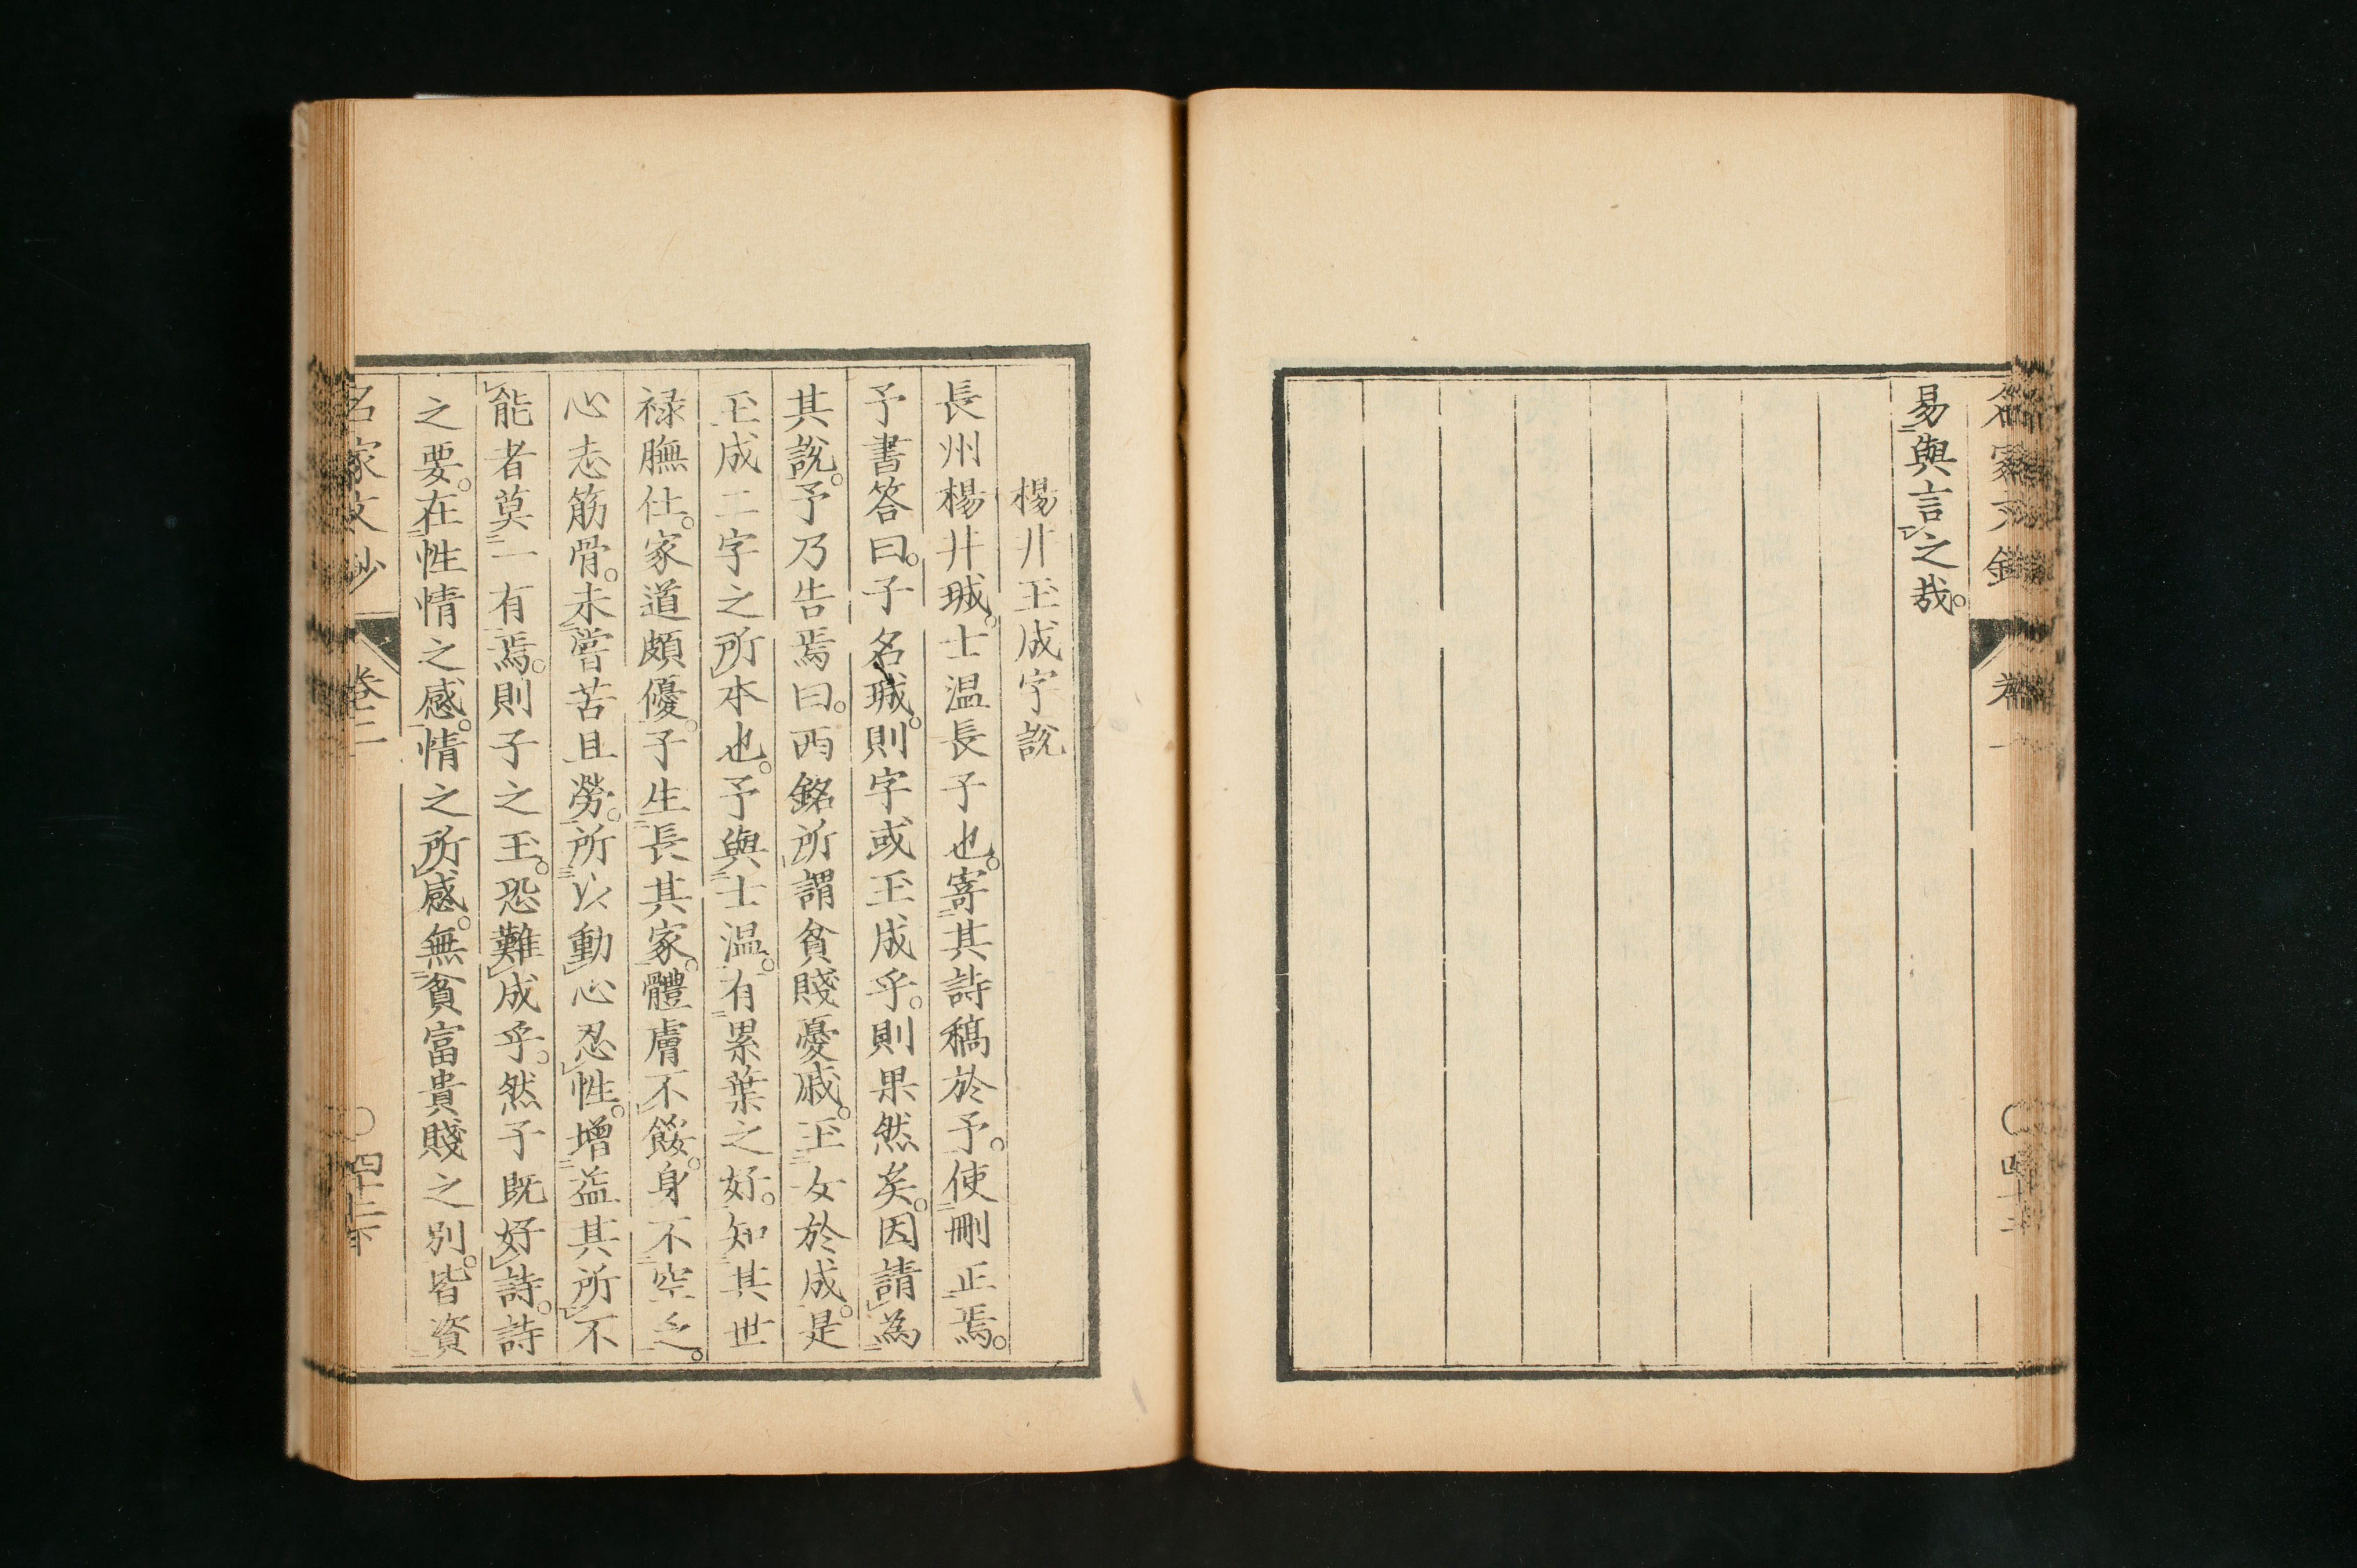 易與言之哉。
楊井玉成字說
長州楊井珹。士温長子也。寄其詩稿於予。使刪正焉。
予書答曰。子名珹。則字或玉成乎。則果然矣。因請為
其說。予乃告焉曰。西銘所謂貧賤憂戚。玉女於成。是
玉成二字之所本也。予與士温。有累葉之好。知其世
禄膴仕。家道頗優。子生長其家。體膚不餒。身不空乏。
心志筋骨。未嘗苦且勞。所以動心忍性。增益其所不
能者莫一有焉。則子之玉。恐難成乎。然子既好詩。詩
之要。在性情之感。情之所感。無貧富貴賤之別。皆資
名家文抄
卷二